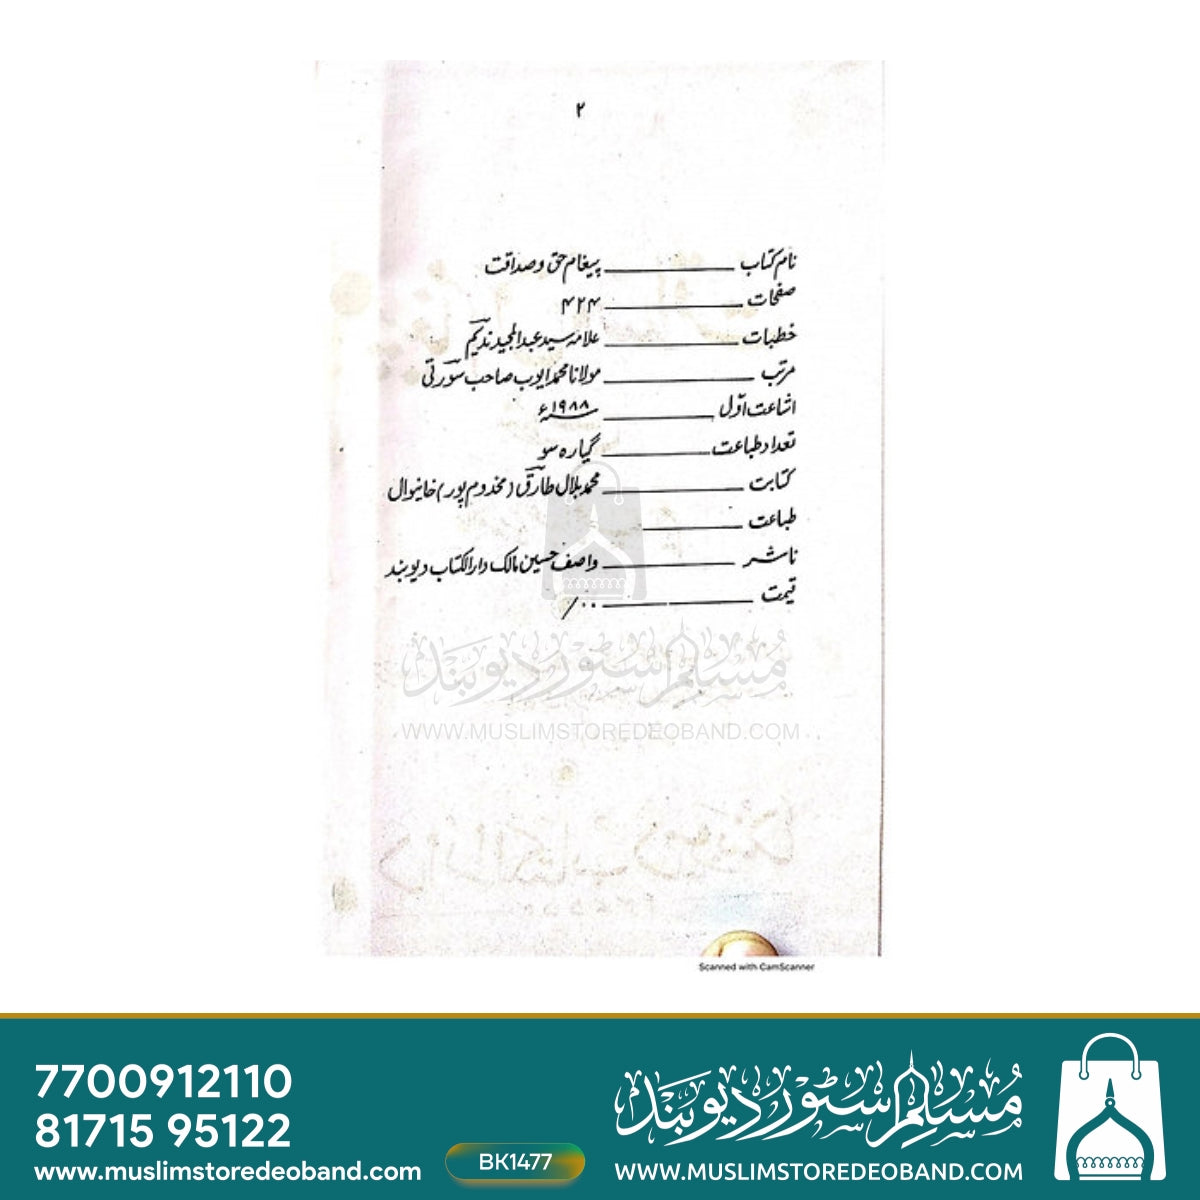 ۲
نام کتاب ــــــــ پیغام حق و صداقت
صفحات ــــــــ ۴۲۴
خطبات ــــــــ علامہ سید عبدالمجید ندیمؔ
مرتب ــــــــ مولانا محمد ایوب صاحب سورتی
اشاعت اوّل ــــــــ ۱۹۸۸ء
تعداد طباعت ــــــــ گیارہ سو
کتابت ــــــــ محمد بلال طارقؔ (مخدوم پور) خانیوال
طباعت ــــــــ
ناشر ــــــــ واصف حسین مالک دارالکتاب دیوبند
قیمت ــــــــ ۰۰/
مُسلم سٹور دیوبند
WWW.MUSLIMSTOREDEOBAND.COM
Scanned with CamScanner
7700912110
81715 95122
www.muslimstoredeoband.com
BK1477
مُسلم سٹور دیوبند
WWW.MUSLIMSTOREDEOBAND.COM